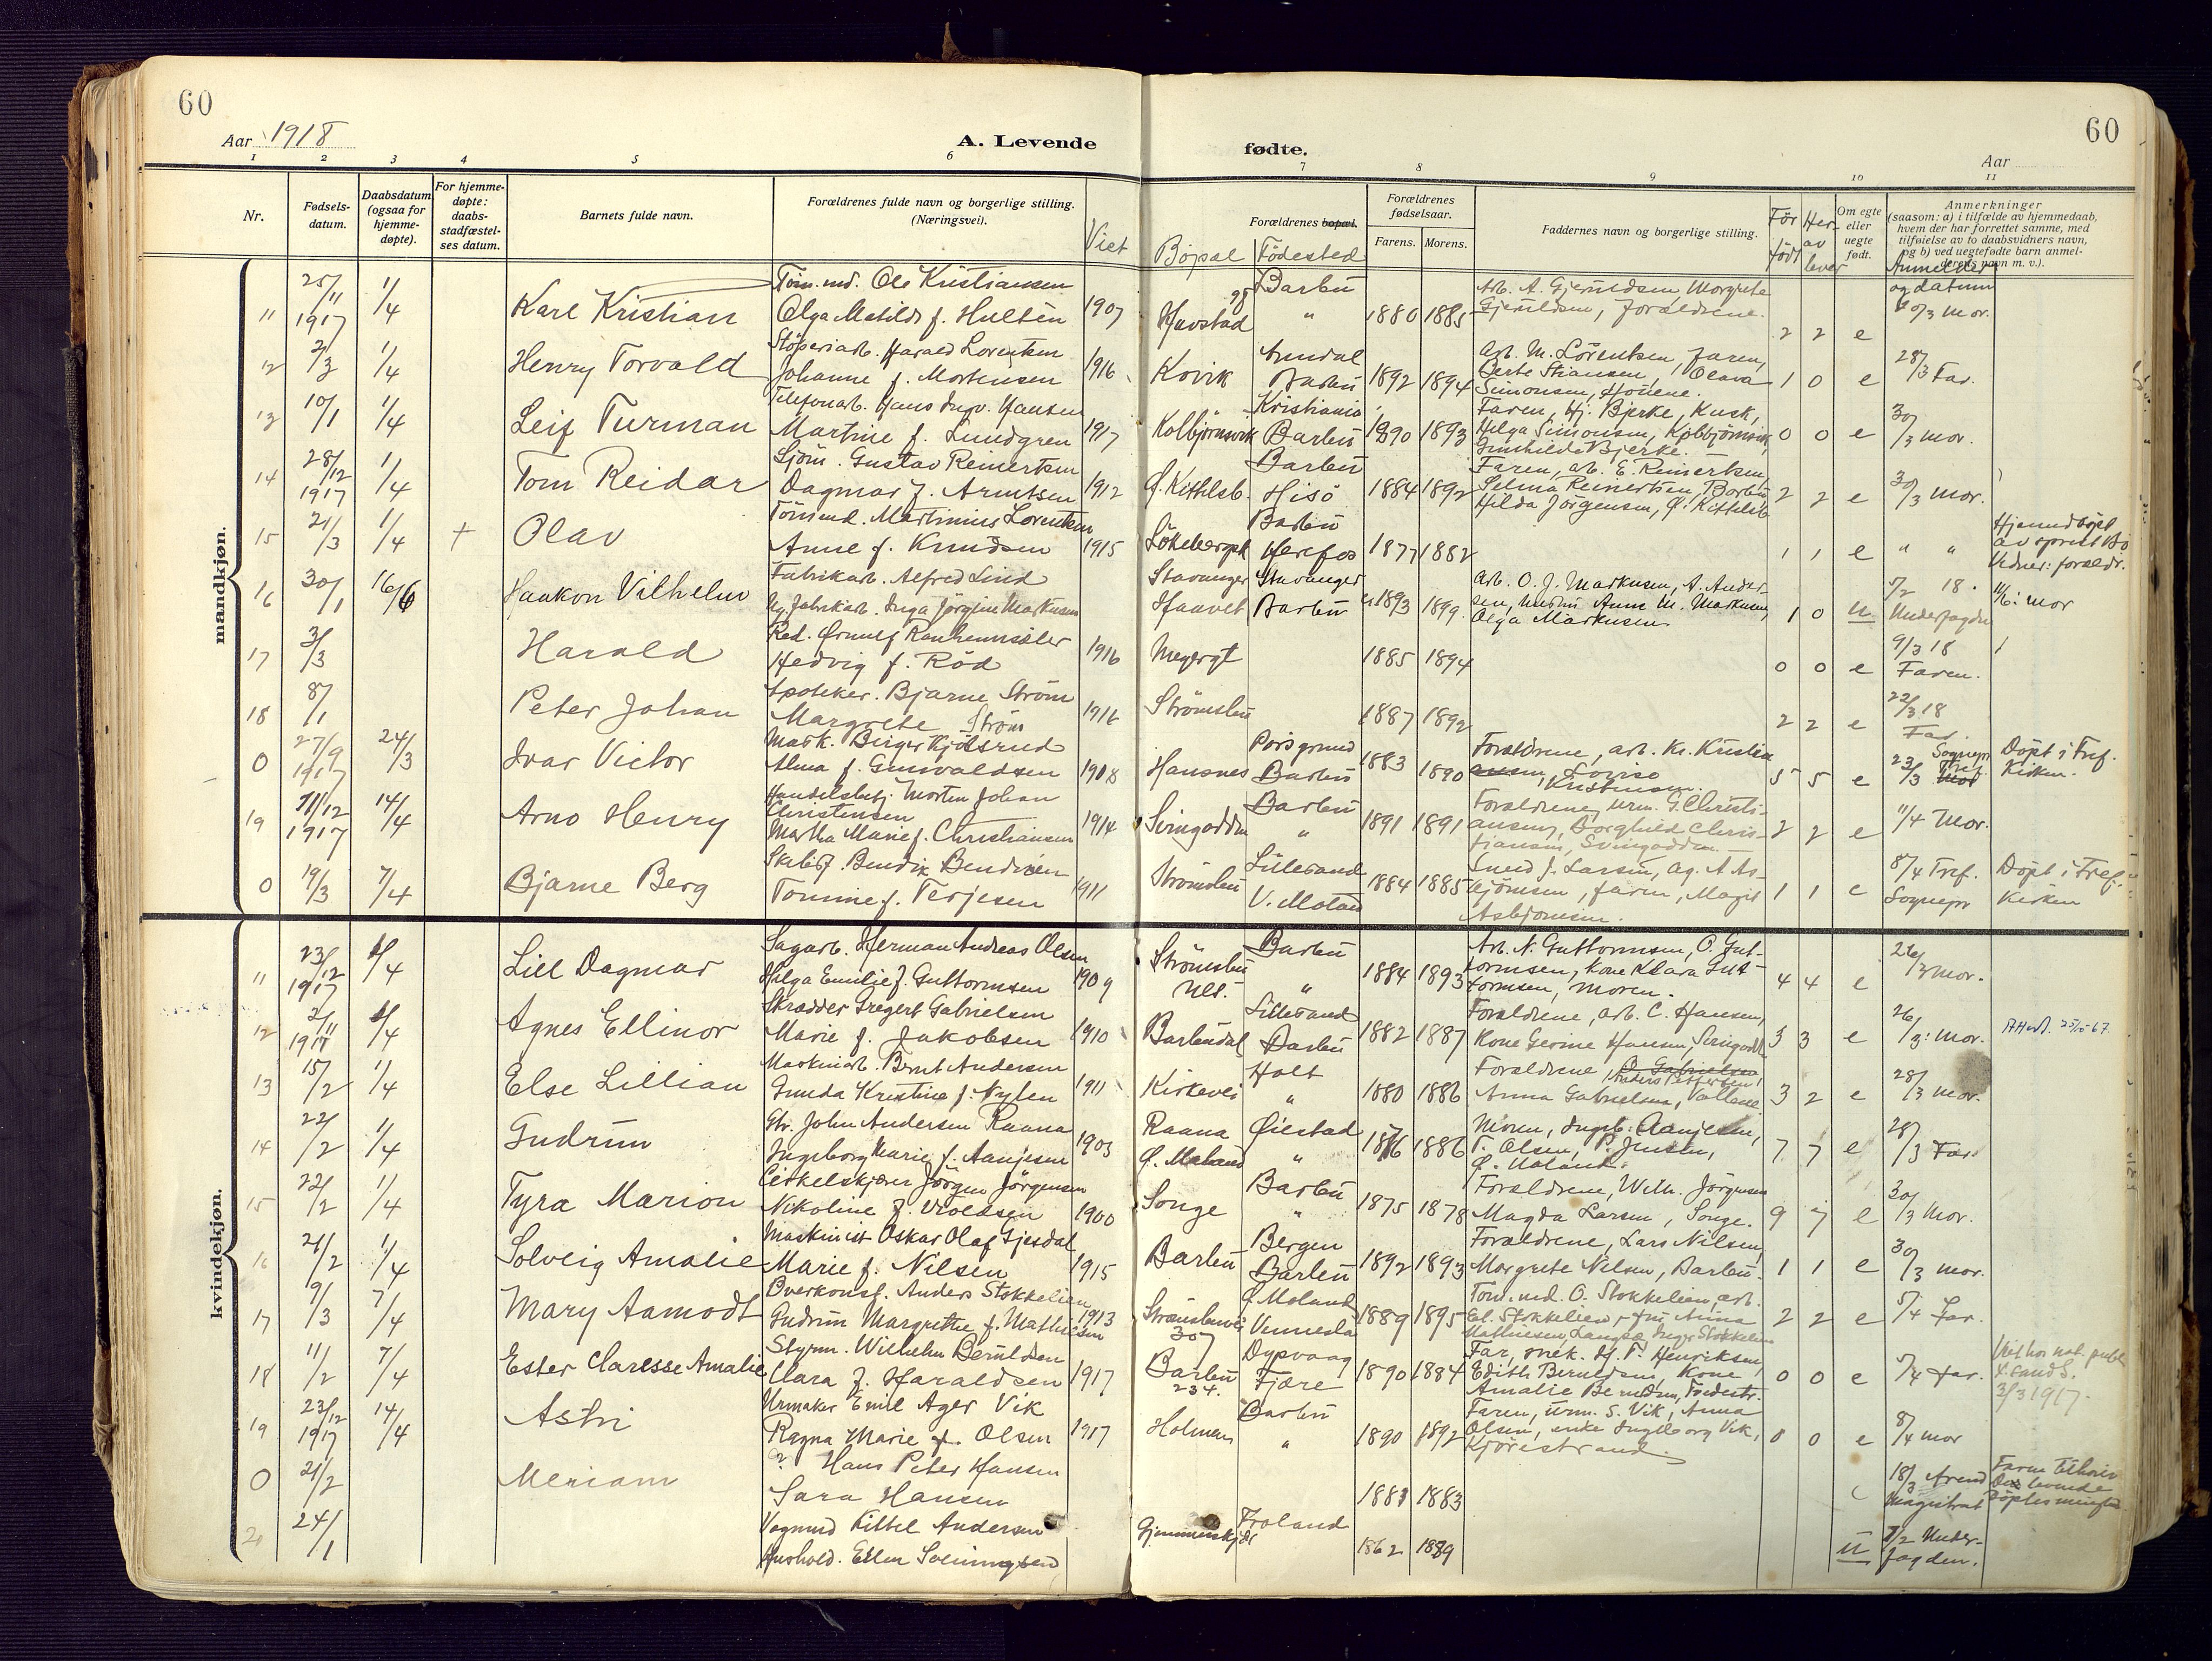 60
60
Aar 1918
A. Levende
fødte.
Aar
1 2 3 4 5 6 7 8 9 10 11
Nr.
Fødsels-
datum.
Daabsdatum
(ogsaa for
hjemme-
døpte).
For hjemme-
døpte:
daabs-
stadfæstel-
ses datum.
Barnets fulde navn.
Forældrenes fulde navn og borgerlige stilling.
(Næringsvei).
Viet
Forældrenes bopæl.
Bopæl Födested
Forældrenes
fødselsaar.
Farens. Morens.
Faddernes navn og borgerlige stilling.
Før
født
Her-
av
lever
Om egte
eller
uegte
født.
Anmerkninger
(saasom: a) i tilfælde av hjemmedaab,
hvem der har forrettet samme, med
tilføielse av to daabsvidners navn,
og b) ved uegtefødte barn anmel-
derens navn m. v.).
Anmelder
og datum
mandkjøn.
11 25/11 1917 1/4 Karl Kristian
Töm.md. Ole Kristiansen
Olga Matilde f. Hulten 1907
Havstad Barbu " 1880 1885
Arb. A. Gjeruldsen, Morgrete
Gjeruldsen, Forældrene.
2 2 e 20/3 mor.
12 2/3 1/4 Henry Torvald
Støperiarb. Harald Lorentsen
Johanne f. Mortensen 1916
Kovik Arendal Barbu 1892 1894
Arb. M. Lörentsen, Faren,
Olava
Simonsen,
1 0 e 28/3 Far.
13 10/1 1/4 Leif Turman
Telefonarb. Hans Ingv. Hansen
Martine f. Lundgren 1917
Kolbjørnsvik Kristiania Barbu 1890 1893
Faren, Hj. Bjerke, Kusk,
Helga Simonsen, Kolbjörnsvik,
Gunhilde Bjerke.
0 0 e 30/3 mor.
14 28/12 1917 1/4 Tom Reidar
Sjöm. Gustav Reinertsen
Dagmar f. Arntsen 1912
Ö. Kittelsb. Barbu Hisö 1884 1892
Faren, arb. E. Reinertsen,
Selma Reinertsen, Barbu,
Hilda Jörgensen, Ö. Kittelsb
2 2 e 30/3 mor.
15 21/3 1/4 + Olav
Tömmd. Martinius Lorentsen
Anne f. Knudsen 1915
Barbu Herefos 1877 1882
1 1 e " "
Hjemmedöpt
av sprest Bö
Vidner: foreldr.
16 30/1 16/6 Haakon Vilhelm
Fabrikarb. Alfred Lind
Ug. fabrikarb. Inga Jörgine Markusen
Stavanger Stavanger
Haavet Barbu 1893 1899
Arb. O. J. Markusen, A. Ander-
sen, Anne M. Markusen,
Olga Markusen
1 0 u 5/2 18. 11/6: mor
Underfogden
17 3/3 Harald
Red. Ørnulf Ranheimsæter
Hedvig f. Röd 1916
Meyergt 1885 1894
0 0 e 9/3 18
Faren.
18 8/1 Peter Johan
Apoteker. Bjarne Ström
Margrete Ström 1916
Strömsbu 1887 1892
2 2 e 22/3 18
Far.
0 27/9 1917 24/3 Ivar Victor
Mask. Birger Kjölsrud
Alma f. Grusvaldsen 1908
Hansnes Porsgrund Barbu 1883 1890
Forældrene, arb. Kr. Kristia
ansen, Lovise
Kristensen.
5 5 e 23/3 Sognepr
Fref. mor
Döpt i Fref.
Kirken.
19 11/12 1917 14/4 Arno Henry
Handelsbetj. Morten Johan
Christensen
Martha Marie f. Christiansen 1914
Svingodden Barbu " 1891 1891
Forældrene, urm. G. Christi-
ansen, Borghild Chris-
tiansen, Svingodden.
2 2 e 11/4 Mor.
0 19/3 7/4 Bjarne Berg
Skibsf. Bendix Bendixen
Tomine f. Terjesen 1911
Strömsbu Lillesand V. Moland 1884 1885
Sned. J. Larsen, Ag. A As-
björnsen, faren, Magit
Asbjörnsen.
1 1 e 8/4 Fref.
Sognepr
Döpt i Fref.
Kirken
kvindekjøn.
11 23/12 1917 1/4 Lill Dagmar
Sagarb. Herman Andreas Olsen
Helga Emilie f. Guttormsen 1909
Strömsbu
Barbu " 1884 1893
Arb. N. Guttormsen, O. Gut-
tormsen, Kone Klara Gut-
tormsen, Moren.
4 4 e 26/3 mor.
12 2/11 1917 1/4 Agnes Ellinor
Skrædder Gregert Gabrielsen
Marie f. Jakobsen 1910
Barbudal Lillesand Barbu 1882 1887
Forældrene, arb. C. Hansen,
Kone Hansen, Svingodd.
3 3 e 26/3: mor.
13 15/2 1/4 Else Lillian
Maskinarb. Bernt Andersen
Gunda Kristine f. Nylen 1911
Kirkevei Holt " 1880 1886
Forældrene, O. Gabrielsen,
Anders Pettersen,
Anna Gabrielsen,
3 2 e 28/3 mor.
14 22/2 1/4 Gudrun
Gbr. John Andersen Raana
Ingeborg Marie f. Aanjesen 1903
Raana
Ö. Moland
Öiestad " 1876 1886
Moren, Ingeb. Aanjesen,
T. Olsen, P. Jensen,
Ö. Moland.
7 7 e 28/3 Far.
15 22/2 1/4 Tyra Marion
Cirkelskjærer Jörgen Jörgensen
Nikoline f. Voldsen 1900
Songe Barbu " 1875 1878
Forældrene, Wilh. Jörgensen
Magda Larsen, Songe.
9 7 e 30/3 Mor.
16 21/2 1/4 Solveig Amalie
Maskinist Oskar Olaf Gjesdal,
Marie f. Nilsen 1915
Barbu Bergen Barbu 1892 1893
Forældrene, Lars Nilsen,
Morgrete Nilsen, Barbu.
1 1 e 30/3 mor.
17 9/3 7/4 Mary Aamodt
Overkonst. Anders Stokkelien
Gudrun Margrethe f. Mathiesen 1913
Strömsbuvei
307
Ö. Moland Vennesla 1889 1895
Tom.md. O. Stokkelien, arb.
El. Stokkelien, fru Anna
Mathiesen, Langsæ, Inger Stokkelien
2 2 e 5/4 Far.
18 11/2 7/4 Ester Claresse Amalie
Styrm. Wilhelm Beruldsen
Clara f. Haraldsen 1917
Barbu
234.
Dypvaag Fjære 1890 1884
Far, mek. H. T. Henriksen,
Edith Beruldsen, Kone
Amalie Beruldsen,
0 0 e 5/4 Far.
Viet hos not. publ.
K.sand S.
3/3 1917.
19 23/12 1917 14/4 Astri
Urmaker Emil Ager Vik
Ragna Marie f. Olsen 1917
Holmen Barbu " 1890 1892
Faren, urm. S. Vik, Anna
Olsen, enke Ingeborg Vik,
Kjörrestrand.
0 0 e 8/4 mor
0 21/2 Meriam
Hans Peter Hansen
Sara Hansen
1881 1883
18/3 Arend
Magistrat
20 24/1
Vognmd Kittel Andersen
Hushold. Ellen
Froland 1862 1889
u 7/2 Under-
fogden.